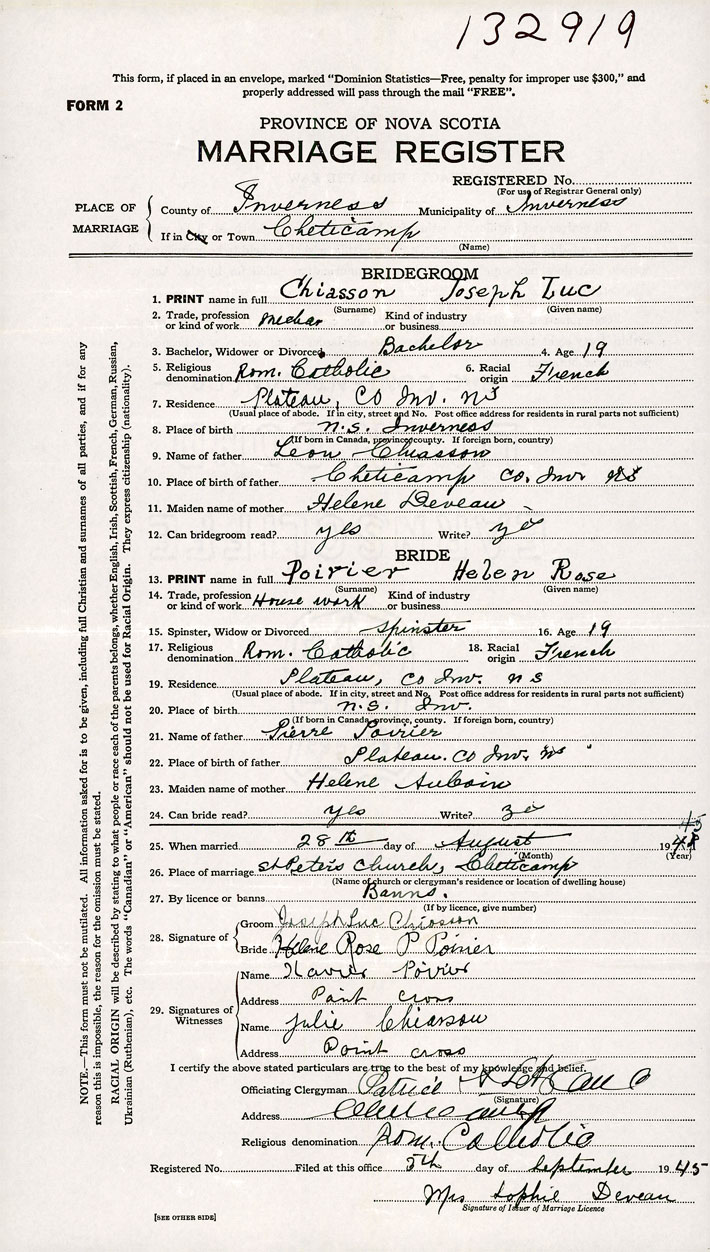 132919
This form, if placed in an envelope, marked "Dominion Statistics—Free, penalty for improper use $300," and
properly addressed will pass through the mail "FREE".
FORM 2
PROVINCE OF NOVA SCOTIA
MARRIAGE REGISTER
REGISTERED No.
(For use of Registrar General only)
PLACE OF MARRIAGE
County of Inverness Municipality of Inverness
If in City or Town Cheticamp
(Name)
BRIDEGROOM
1. PRINT name in full Chiasson Joseph Luc
(Surname) (Given name)
2. Trade, profession or kind of work Kind of industry or business
3. Bachelor, Widower or Divorced Bachelor 4. Age 19
5. Religious denomination Rom. Catholic 6. Racial origin French
7. Residence Plateau, Co Inv. NS
(Usual place of abode. If in city, street and No. Post office address for residents in rural parts not sufficient)
8. Place of birth N.S. Inverness
(If born in Canada, province, county. If foreign born, country)
9. Name of father Leon Chiasson
10. Place of birth of father Cheticamp Co. Inv NS
11. Maiden name of mother Helene Deveau
12. Can bridegroom read? yes Write? yes
BRIDE
13. PRINT name in full Poirier Helen Rose
(Surname) (Given name)
14. Trade, profession or kind of work House work Kind of industry or business
15. Spinster, Widow or Divorced Spinster 16. Age 19
17. Religious denomination Rom. Catholic 18. Racial origin French
19. Residence Plateau, Co Inv. NS
(Usual place of abode. If in city, street and No. Post office address for residents in rural parts not sufficient)
20. Place of birth N.S. Inv.
(If born in Canada province, county. If foreign born, country)
21. Name of father Pierre Poirier
22. Place of birth of father Plateau. Co Inv. NS
23. Maiden name of mother Helene Aucoin
24. Can bride read? yes Write?
25. When married 28th day of August 1945
(Month) (Year)
26. Place of marriage St Peters Church, Cheticamp
(Name of church or clergyman's residence or location of dwelling house)
27. By licence or banns Banns.
(If by licence, give number)
28. Signature of
Groom Joseph Luc Chiasson
Bride Helene Rose P Poirier
29. Signatures of Witnesses
Name Xavier Poirier
Address Point cross
Name Julie Chiasson
Address Point cross
I certify the above stated particulars are true to the best of my knowledge and belief.
Officiating Clergyman
(Signature)
Address
Religious denomination Rom. Catholic
Registered No. Filed at this office 5th day of September 1945
Mrs Sophie Deveau
Signature of Issuer of Marriage Licence
[SEE OTHER SIDE]
NOTE.—This form must not be mutilated. All information asked for is to be given, including full Christian and surnames of all parties, and if for any
reason this is impossible, the reason for the omission must be stated.
RACIAL ORIGIN will be described by stating to what people or race each of the parents belongs, whether English, Irish, Scottish, French, German, Russian,
Ukrainian (Ruthenian), etc. The words "Canadian" or "American" should not be used for Racial Origin. They express citizenship (nationality).